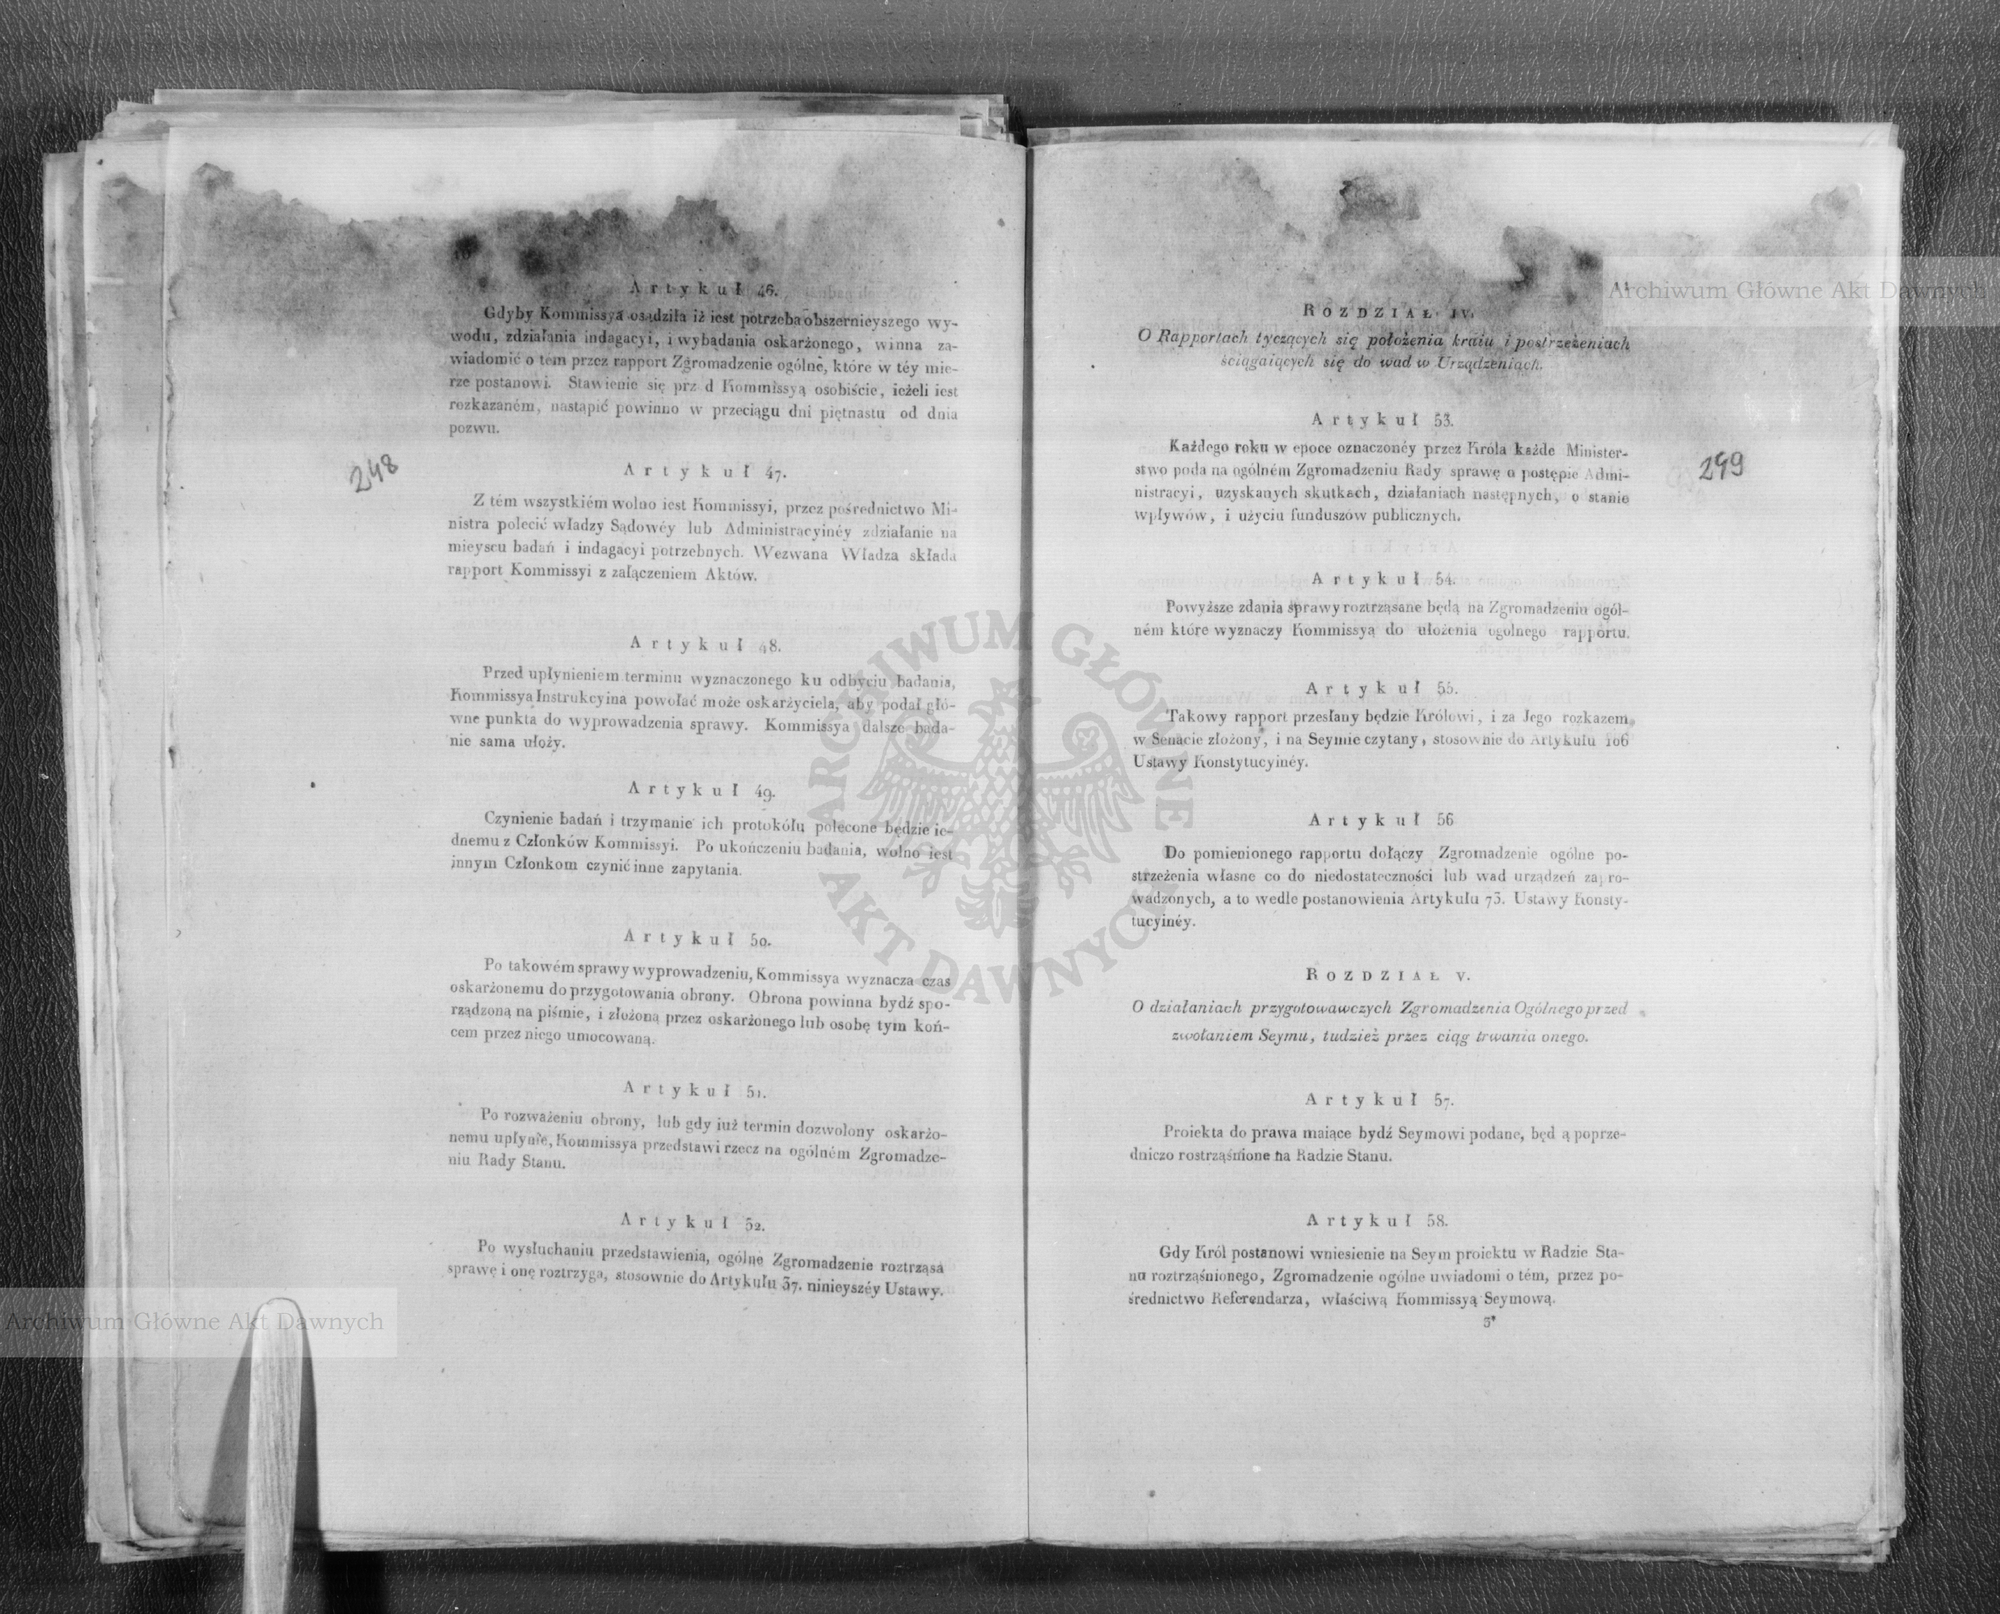 10
Artykuł 46.
Gdyby Kommissya osądziła iż iest potrzeba obszernieyszego wy-
wodu, zdziałania indagacyi, i wybadania oskarżonego, winna za-
wiadomić o tém przez rapport Zgromadzenie ogólne, które w téy mie-
rze postanowi. Stawienie się prz d Kommissyą osobiście, ieżeli iest
rozkazaném, nastąpić powinno w przeciągu dni piętnastu od dnia
pozwu.
248
Artykuł 47.
Z tém wszystkiém wolno iest Kommissyi, przez pośrednictwo Mi-
nistra polecić władzy Sądowéy lub Administracyinéy zdziałanie na
mieyscu badań i indagacyi potrzebnych. Wezwana Władza składa
rapport Kommissyi z załączeniem Aktów.
Artykuł 48.
Przed upłynieniem terminu wyznaczonego ku odbyciu badania,
Kommissya Instrukcyina powołać może oskarżyciela, aby podał głó-
wne punkta do wyprowadzenia sprawy. Kommissya dalsze bada-
nie sama ułoży.
Artykuł 49.
Czynienie badań i trzymanie ich protokółu polecone będzie ie-
dnemu z Członków Kommissyi. Po ukończeniu badania, wolno iest
innym Członkom czynić inne zapytania.
Artykuł 50.
Po takowém sprawy wyprowadzeniu, Kommissya wyznacza czas
oskarżonemu do przygotowania obrony. Obrona powinna bydź spo-
rządzoną na piśmie, i złożoną przez oskarżonego lub osobę tym koń-
cem przez niego umocowaną.
Artykuł 51.
Po rozważeniu obrony, lub gdy iuż termin dozwolony oskarżo-
nemu upłynie, Kommissya przedstawi rzecz na ogólném Zgromadze-
niu Rady Stanu.
Artykuł 52.
Po wysłuchaniu przedstawienia, ogólne Zgromadzenie roztrząsa
sprawę i onę roztrzyga, stosownie do Artykułu 37. ninieyszéy Ustawy.
ROZDZIAŁ IV.
O Rapportach tyczących się położenia kraiu i postrzeżeniach
ściągaiących się do wad w Urządzeniach.
Artykuł 53.
Każdego roku w epoce oznaczonéy przez Króla każde Minister-
stwo poda na ogólném Zgromadzeniu Rady sprawę o postępie Admi-
nistracyi, uzyskanych skutkach, działaniach następnych, o stanie
wpływów, i użyciu funduszów publicznych.
249
Artykuł 54.
Powyższe zdania sprawy roztrząsane będą na Zgromadzeniu ogól-
ném które wyznaczy Kommissyą do ułożenia ogolnego rapportu.
Artykuł 55.
Takowy rapport przesłany będzie Królowi, i za Jego rozkazem
w Senacie złożony, i na Seymie czytany, stosownie do Artykułu 106
Ustawy Konstytucyinéy.
Artykuł 56
Do pomienionego rapportu dołączy Zgromadzenie ogólne po-
strzeżenia własne co do niedostateczności lub wad urządzeń zapro-
wadzonych, a to wedle postanowienia Artykułu 73. Ustawy Konsty-
tucyinéy.
ROZDZIAŁ V.
O działaniach przygotowawczych Zgromadzenia Ogólnego przed
zwołaniem Seymu, tudzież przez ciąg trwania onego.
Artykuł 57.
Proiekta do prawa maiące bydź Seymowi podane, będ ą poprze-
dniczo rostrząśnione na Radzie Stanu.
Artykuł 58.
Gdy Król postanowi wniesienie na Seym proiektu w Radzie Sta-
nu roztrząśnionego, Zgromadzenie ogólne uwiadomi o tém, przez po-
średnictwo Referendarza, właściwą Kommissyą Seymową.
3*
Archiwum Główne Akt Dawnych
Archiwum Główne Akt Dawnych
ARCHIWUM GŁÓWNE
AKT DAWNYCH